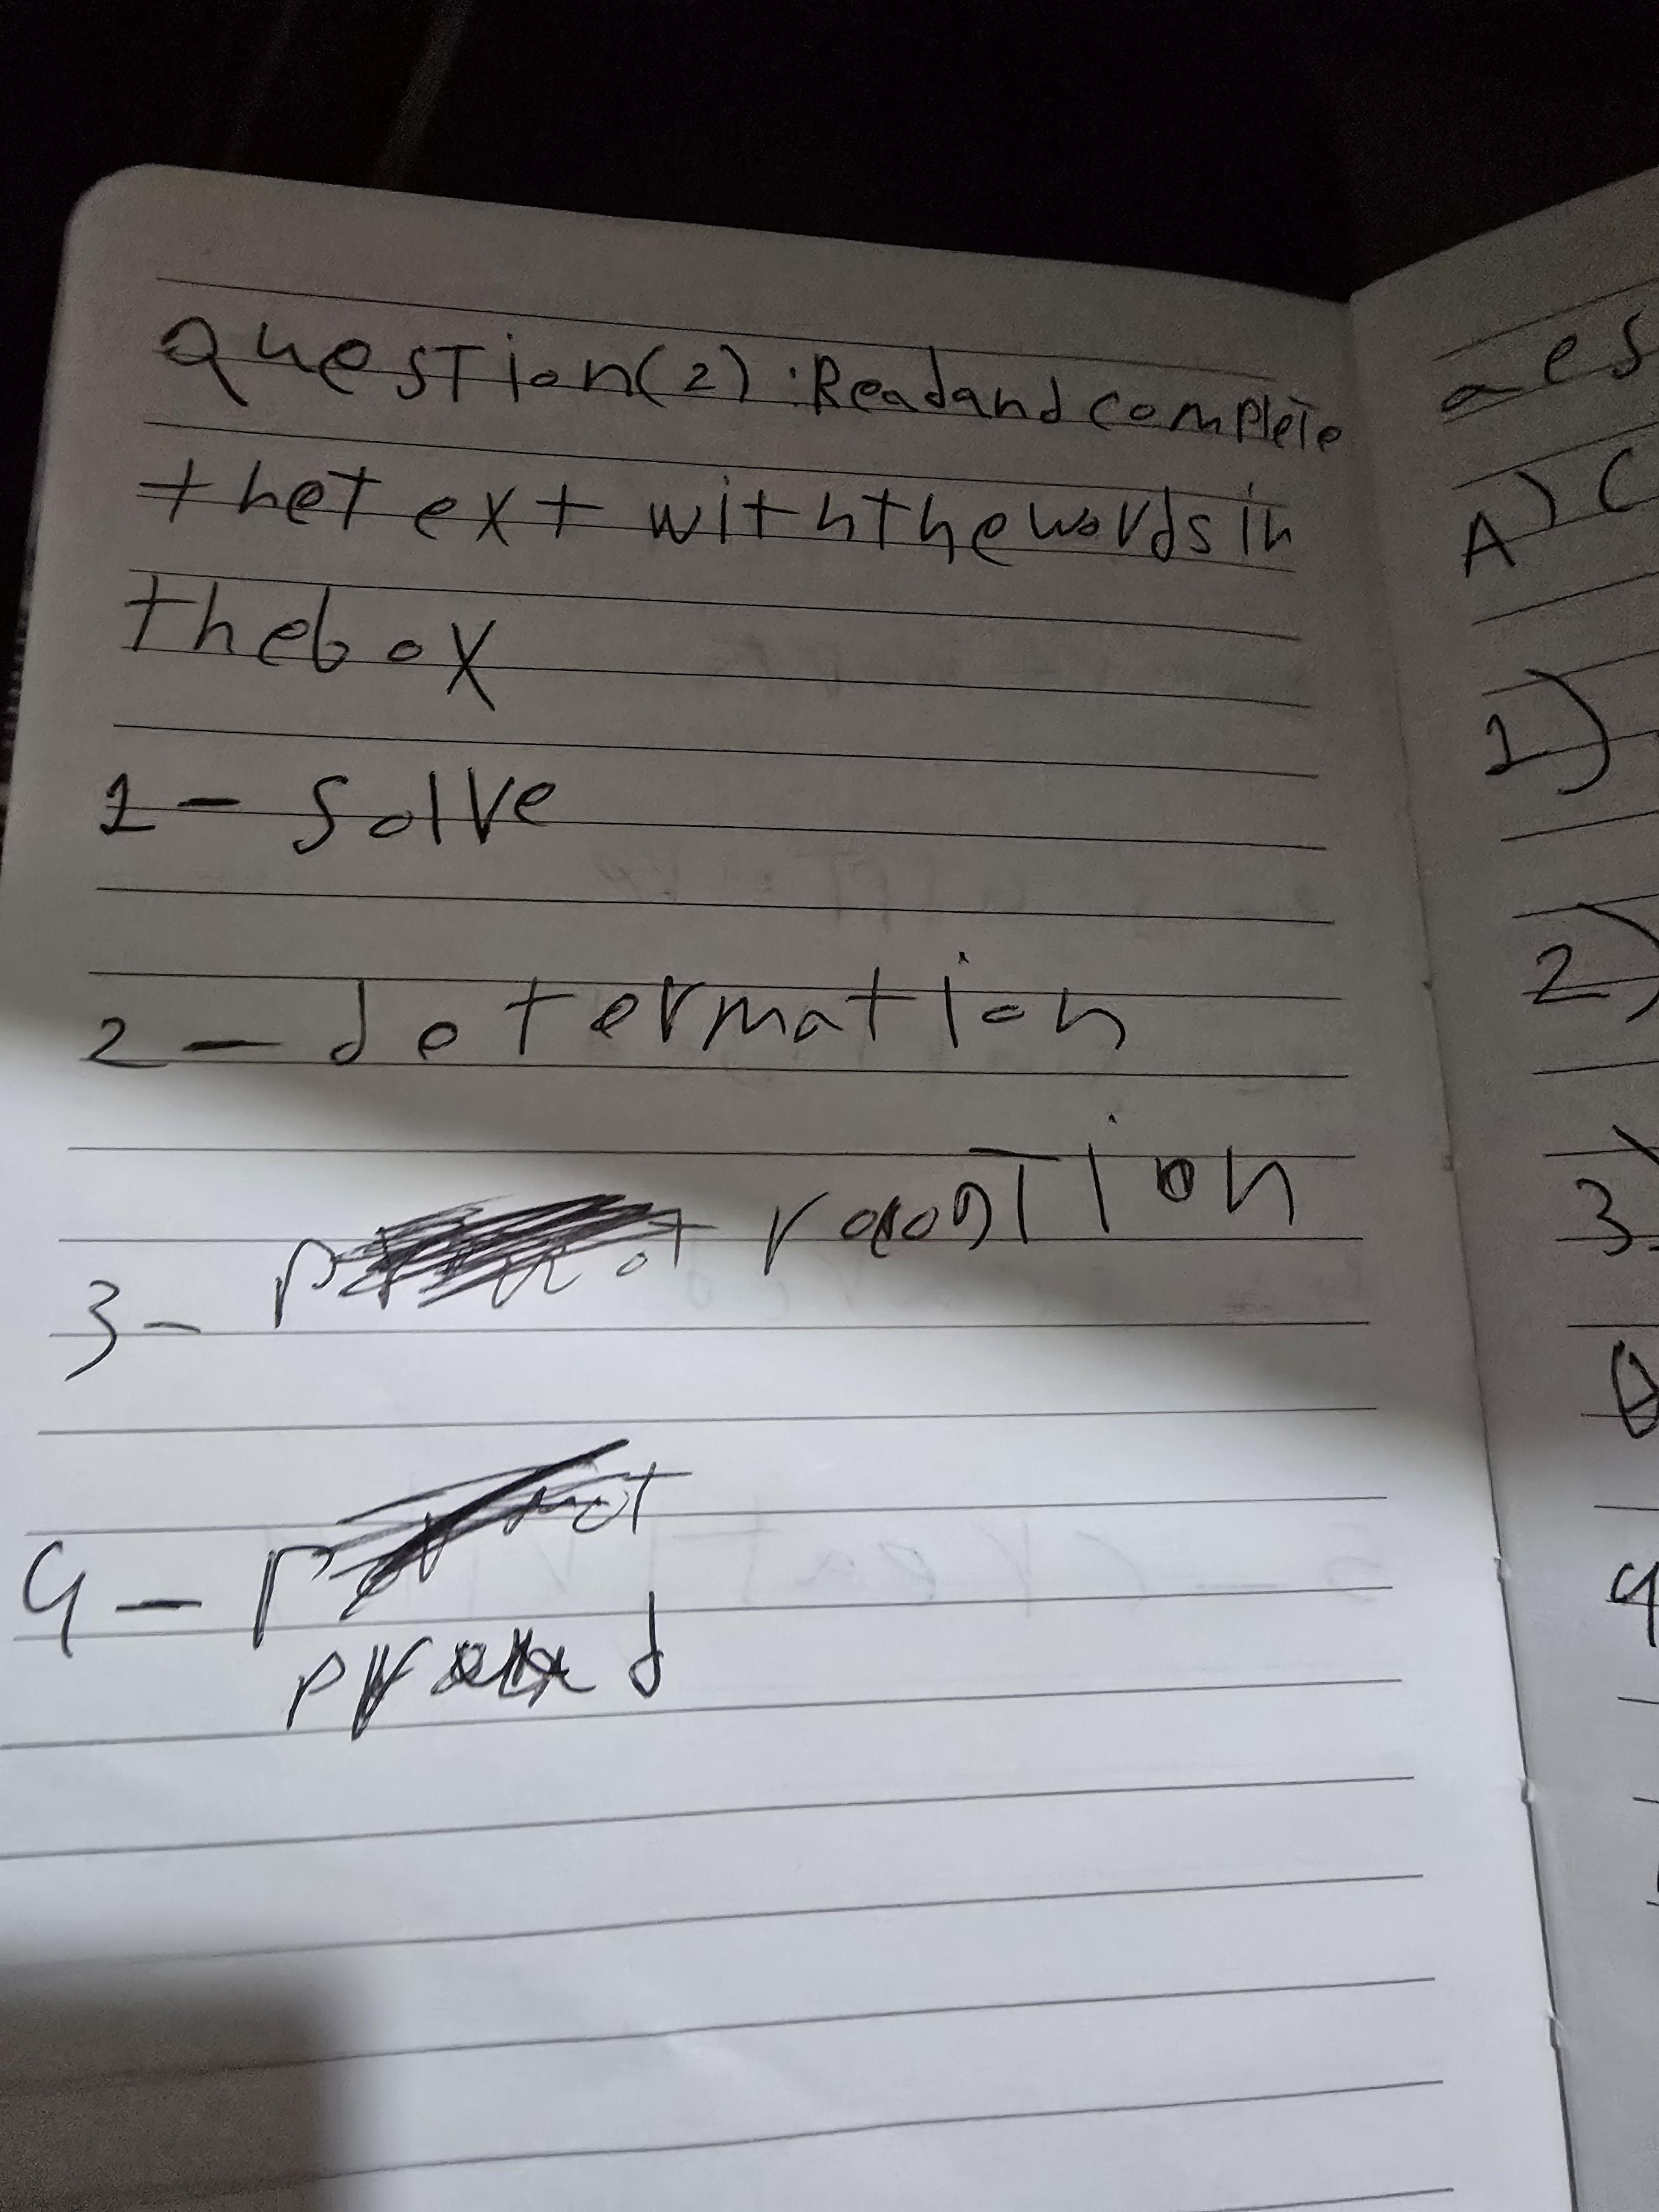 question(2): Read and complete
the text with the words in
the box
1 - solve
2 - determation
3 -
4 -
aes
A) C
1)
2)
3
4